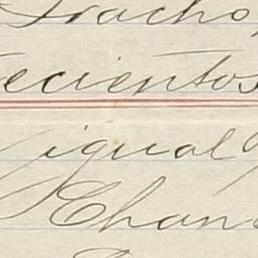 Tracho,
ecientos
igual
Chan